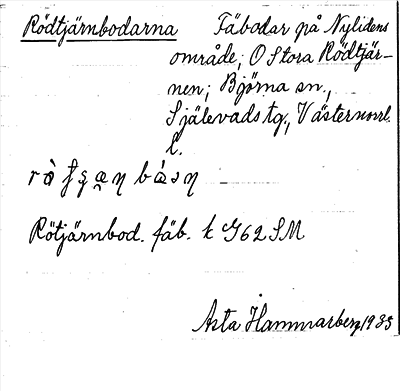 Rödtjärnbodarna Fäbodar på Nylidens
område, O Stora Rödtjär-
nen; Björna sn.,
Själevads tg., Västernorrl.
l.
Rötjärnbod. fäb. k G62 SM
Asta Hammarberg 1935